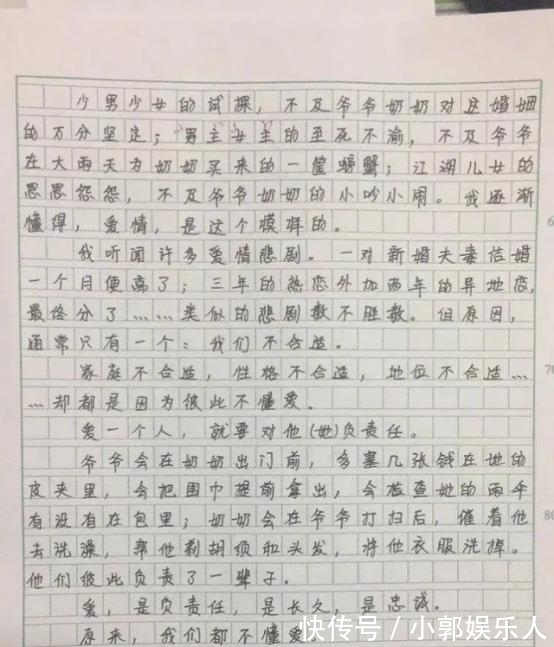 少男少女的试探，不及爷爷奶奶对这婚姻
的万分坚定；男主女主的至死不渝，不及爷爷
在大雨天为奶奶买来的一筐螃蟹；江湖儿女的
恩恩怨怨，不及爷爷奶奶的小吵小闹。我逐渐
懂得，爱情，是这个模样的。
我听闻许多爱情悲剧。一对新婚夫妻结婚
一个月便离了；三年的热恋外加两年的异地恋，
最终分了……类似的悲剧数不胜数。但原因，
通常只有一个：我们不合适。
家庭不合适，性格不合适，地位不合适…
…却都是因为彼此不懂爱。
爱一个人，就要对他(她)负责任。
爷爷会在奶奶出门前，多塞几张钱在她的
皮夹里，会把围巾提前拿出，会检查她的雨伞
有没有在包里；奶奶会在爷爷打扫后，催着他
去洗澡，帮他剃胡须和头发，将他衣服洗掉。
他们彼此负责了一辈子。
爱，是负责任，是长久，是忠诚。
原来，我们都不懂爱。
快传号／小郭娱乐人